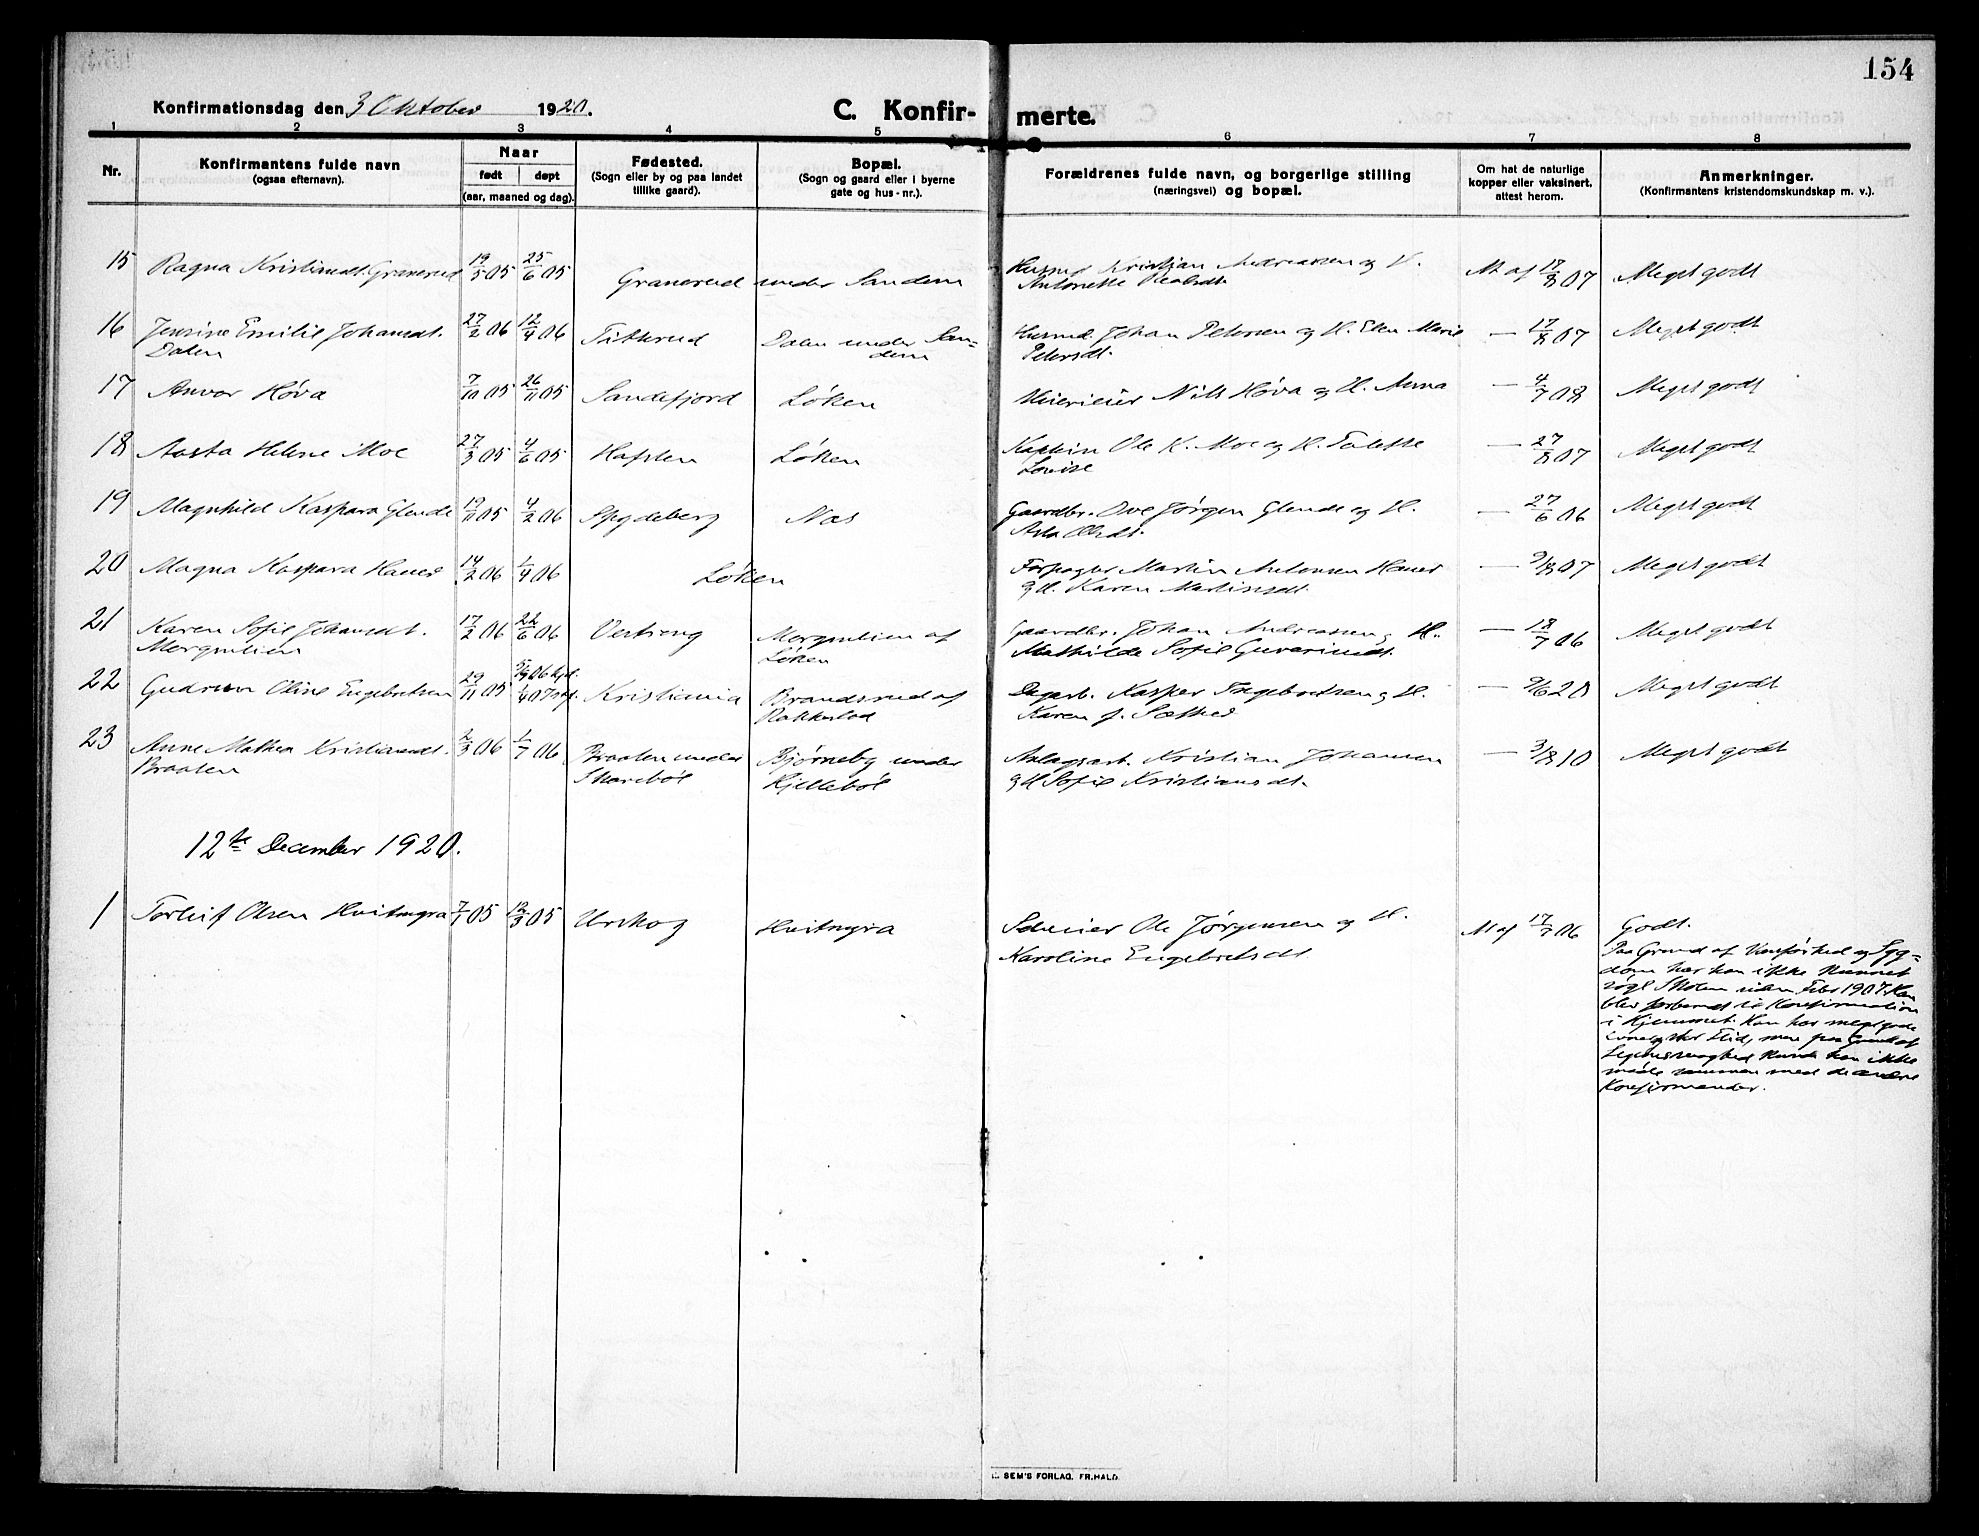 154
Konfirmationsdag den 3 Oktober 1920. C. Konfir- merte.
1 2 3 4 5 6 7 8
Nr. Konfirmantens fulde navn (ogsaa efternavn). Naar født døpt (aar, maaned og dag). Fødested. (Sogn eller by og paa landet tillike gaard). Bopæl. (Sogn og gaard eller i byerne gate og hus-nr.). Forældrenes fulde navn, og borgerlige stilling (næringsvei) og bopæl. Om hat de naturlige kopper eller vaksinert, attest herom. Anmerkninger. (Konfirmantens kristendomskundskap m. v.).
15 Ragna Kristiansdt. Granerud 19/5 05 25/6 05 Granerud under Sandem Husmd Kristian Andreassen og H. At af 18/8 07 Meget godt
Antonette
16 Jensine Emilie Johansdt. 27/2 06 12/4 06 Titterud Dalen under San- Husmd. Johan Petersen og H. Ellen Marie — 17/8 07 Meget godt
Dalen dem Petersdt.
17 Anvor Høva 7/10 05 26/11 05 Sandefjord Løken Meierieier Nils Høva og H. Anna — 4/7 08 Meget godt
18 Aasta Helene Moe 27/3 05 4/6 05 Hafslen Løken Kaptein Ole K. Moe og H. Valette — 27/8 07 Meget godt
Lovise
19 Magnhild Kaspara Glende 19/11 05 4/2 06 Spydeberg Næs Gaardbr. Ove Jørgen Glende og H. — 27/6 06 Meget godt
Asta Olsdt.
20 Magna Kaspara Haner 14/2 06 1/4 06 Løken Forpagter Martin Antonsen Haner — 9/8 07 Meget godt
og H. Karen Martinsdt.
21 Karen Sofie Johansdt. 17/2 06 22/6 06 Vestreng Morgenlien af Gaardbr. Johan Andreassen og H. — 18/7 06 Meget godt
Morgenlien Løken Mathilde Sofie Guvariusdt.
22 Gudrun Oline Engebretsen 29/11 05 06 hjd. 1/4 07 Kristiania Brandsrud af Dagarb. Kasper Ingebretsen og H. — 9/6 20 Meget godt
Rakkestad Karen f. Sæther
23 Anne Mathea Kristiansdt. 2/3 06 1/7 06 Braaten under Bjørneby under Anlagsarb. Kristian Johansen — 3/8 10 Meget godt
Braaten Skarebøl Kjellebøl og H Sofie Kristiansdt.
12te December 1920.
1 Torleif Olsen Hvitmyra 7/1 05 12/3 05 Urskog Hvitmyra Ole Jørgensen og H. At af 17/7 06 Godt.
Karoline Engebretsdt
Paa Grund af Vanførhed og Syg-
dom har han ikke kunnet
søgt Skolen siden Febr 1907. Han
blev forberedt til Konfirmation
i Hjemmet. Han har meget gode
Evner og stor Flid, men paa Grund af
Legemssvaghed kunde han ikke
møde sammen med de andre
Konfirmander.
SEM'S FORLAG, FR.HALD.